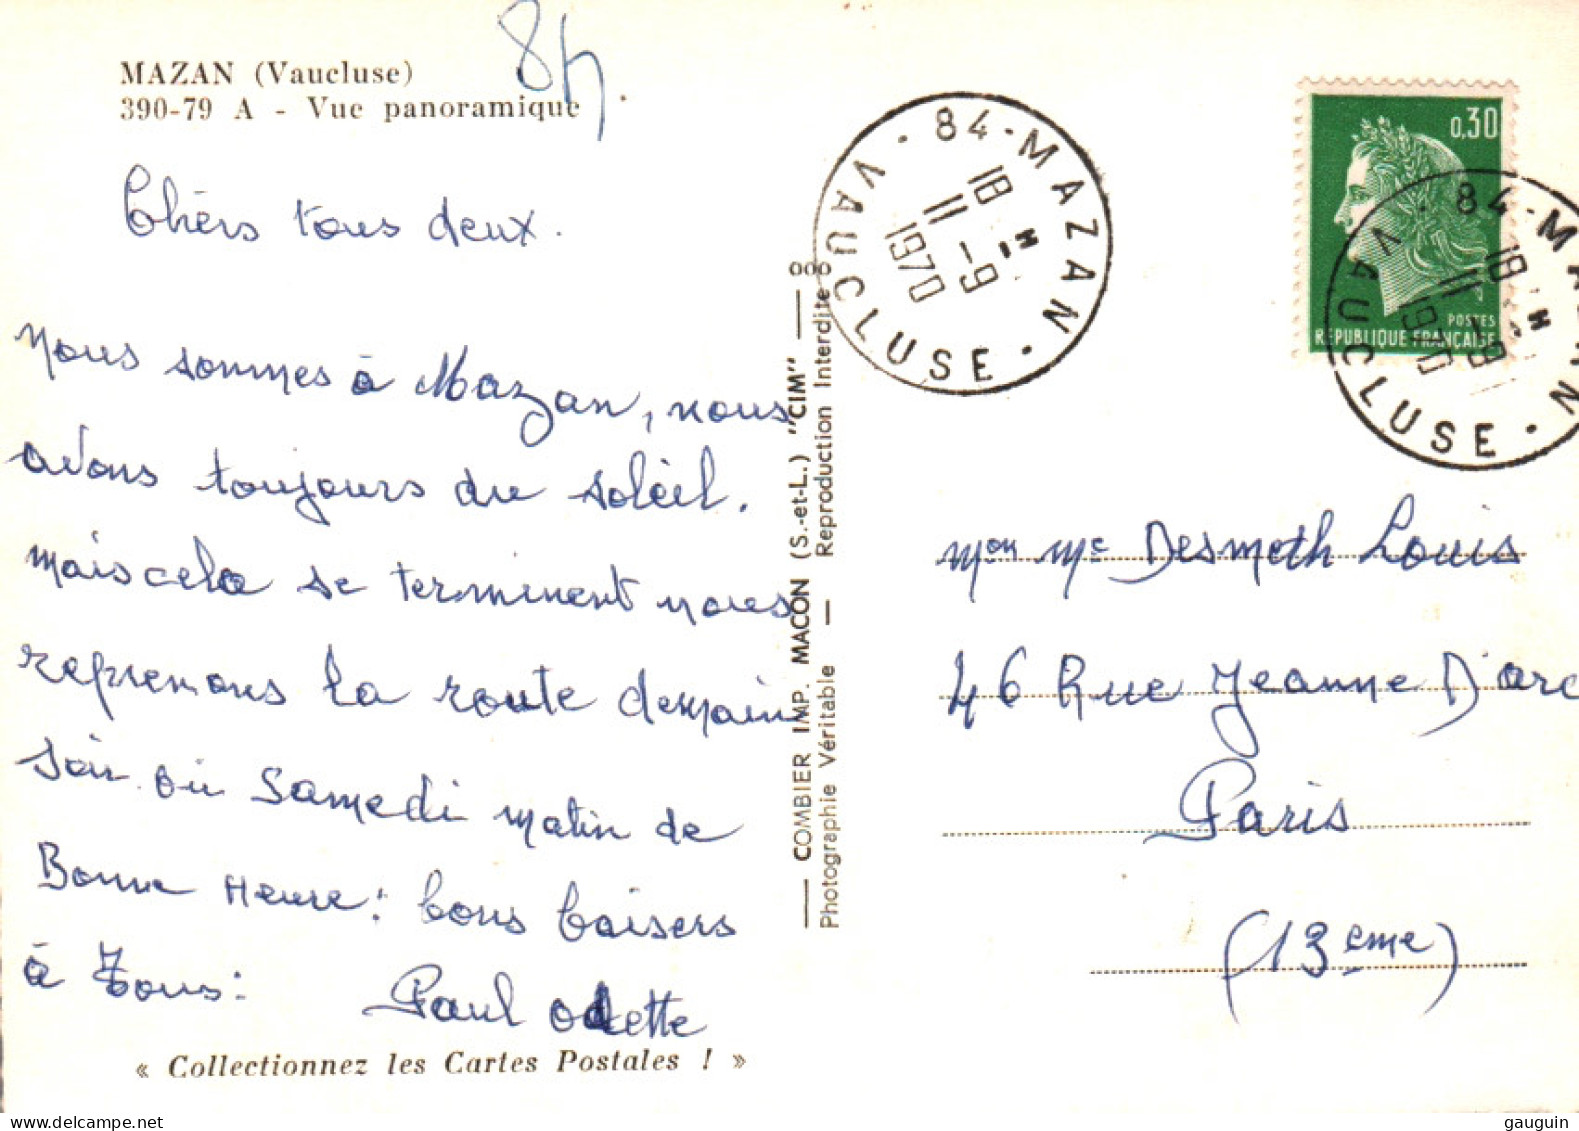 84
MAZAN (Vaucluse)
390-79 A - Vue panoramique
Chers tous deux.
Nous sommes à Mazan, nous
avons toujours du soleil.
mais cela se terminent nous
reprenons la route demain
soir ou Samedi matin de
Bonne Heure: bons baisers
à Tous:
Paul Odette
« Collectionnez les Cartes Postales ! »
COMBIER IMP. MACON (S.-et-L.) "CIM"
Photographie Véritable — Reproduction Interdite
84 - MAZAN · VAUCLUSE ·
18 H
11 - 9
1970
0,30
POSTES
REPUBLIQUE FRANÇAISE
84 - MAZAN · VAUCLUSE ·
18 H
11 - 9
1970
Mon Me Desmeth Louis
46 Rue Jeanne D'arc
Paris
(13eme)
gauguin